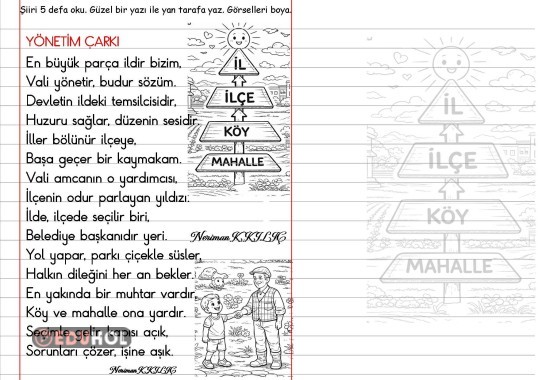 Şiiri 5 defa oku. Güzel bir yazı ile yan tarafa yaz. Görselleri boya.
YÖNETİM ÇARKI
En büyük parça ildir bizim,
Vali yönetir, budur sözüm.
Devletin ildeki temsilcisidir,
Huzuru sağlar, düzenin sesidir.
İller bölünür ilçeye,
Başa geçer bir kaymakam.
Vali amcanın o yardımcısı,
İlçenin odur parlayan yıldızı.
İlde, ilçede seçilir biri,
Belediye başkanıdır yeri.
Yol yapar, parkı çiçekle süsler,
Halkın dileğini her an bekler.
En yakında bir muhtar vardır,
Köy ve mahalle ona yardır.
Seçimle gelir kapısı açık,
Sorunları çözer, işine aşık.
Neriman KKILIÇ
EDUHOL
İL
İLÇE
KÖY
MAHALLE
Neriman KKILIÇ
İL
İLÇE
KÖY
MAHALLE